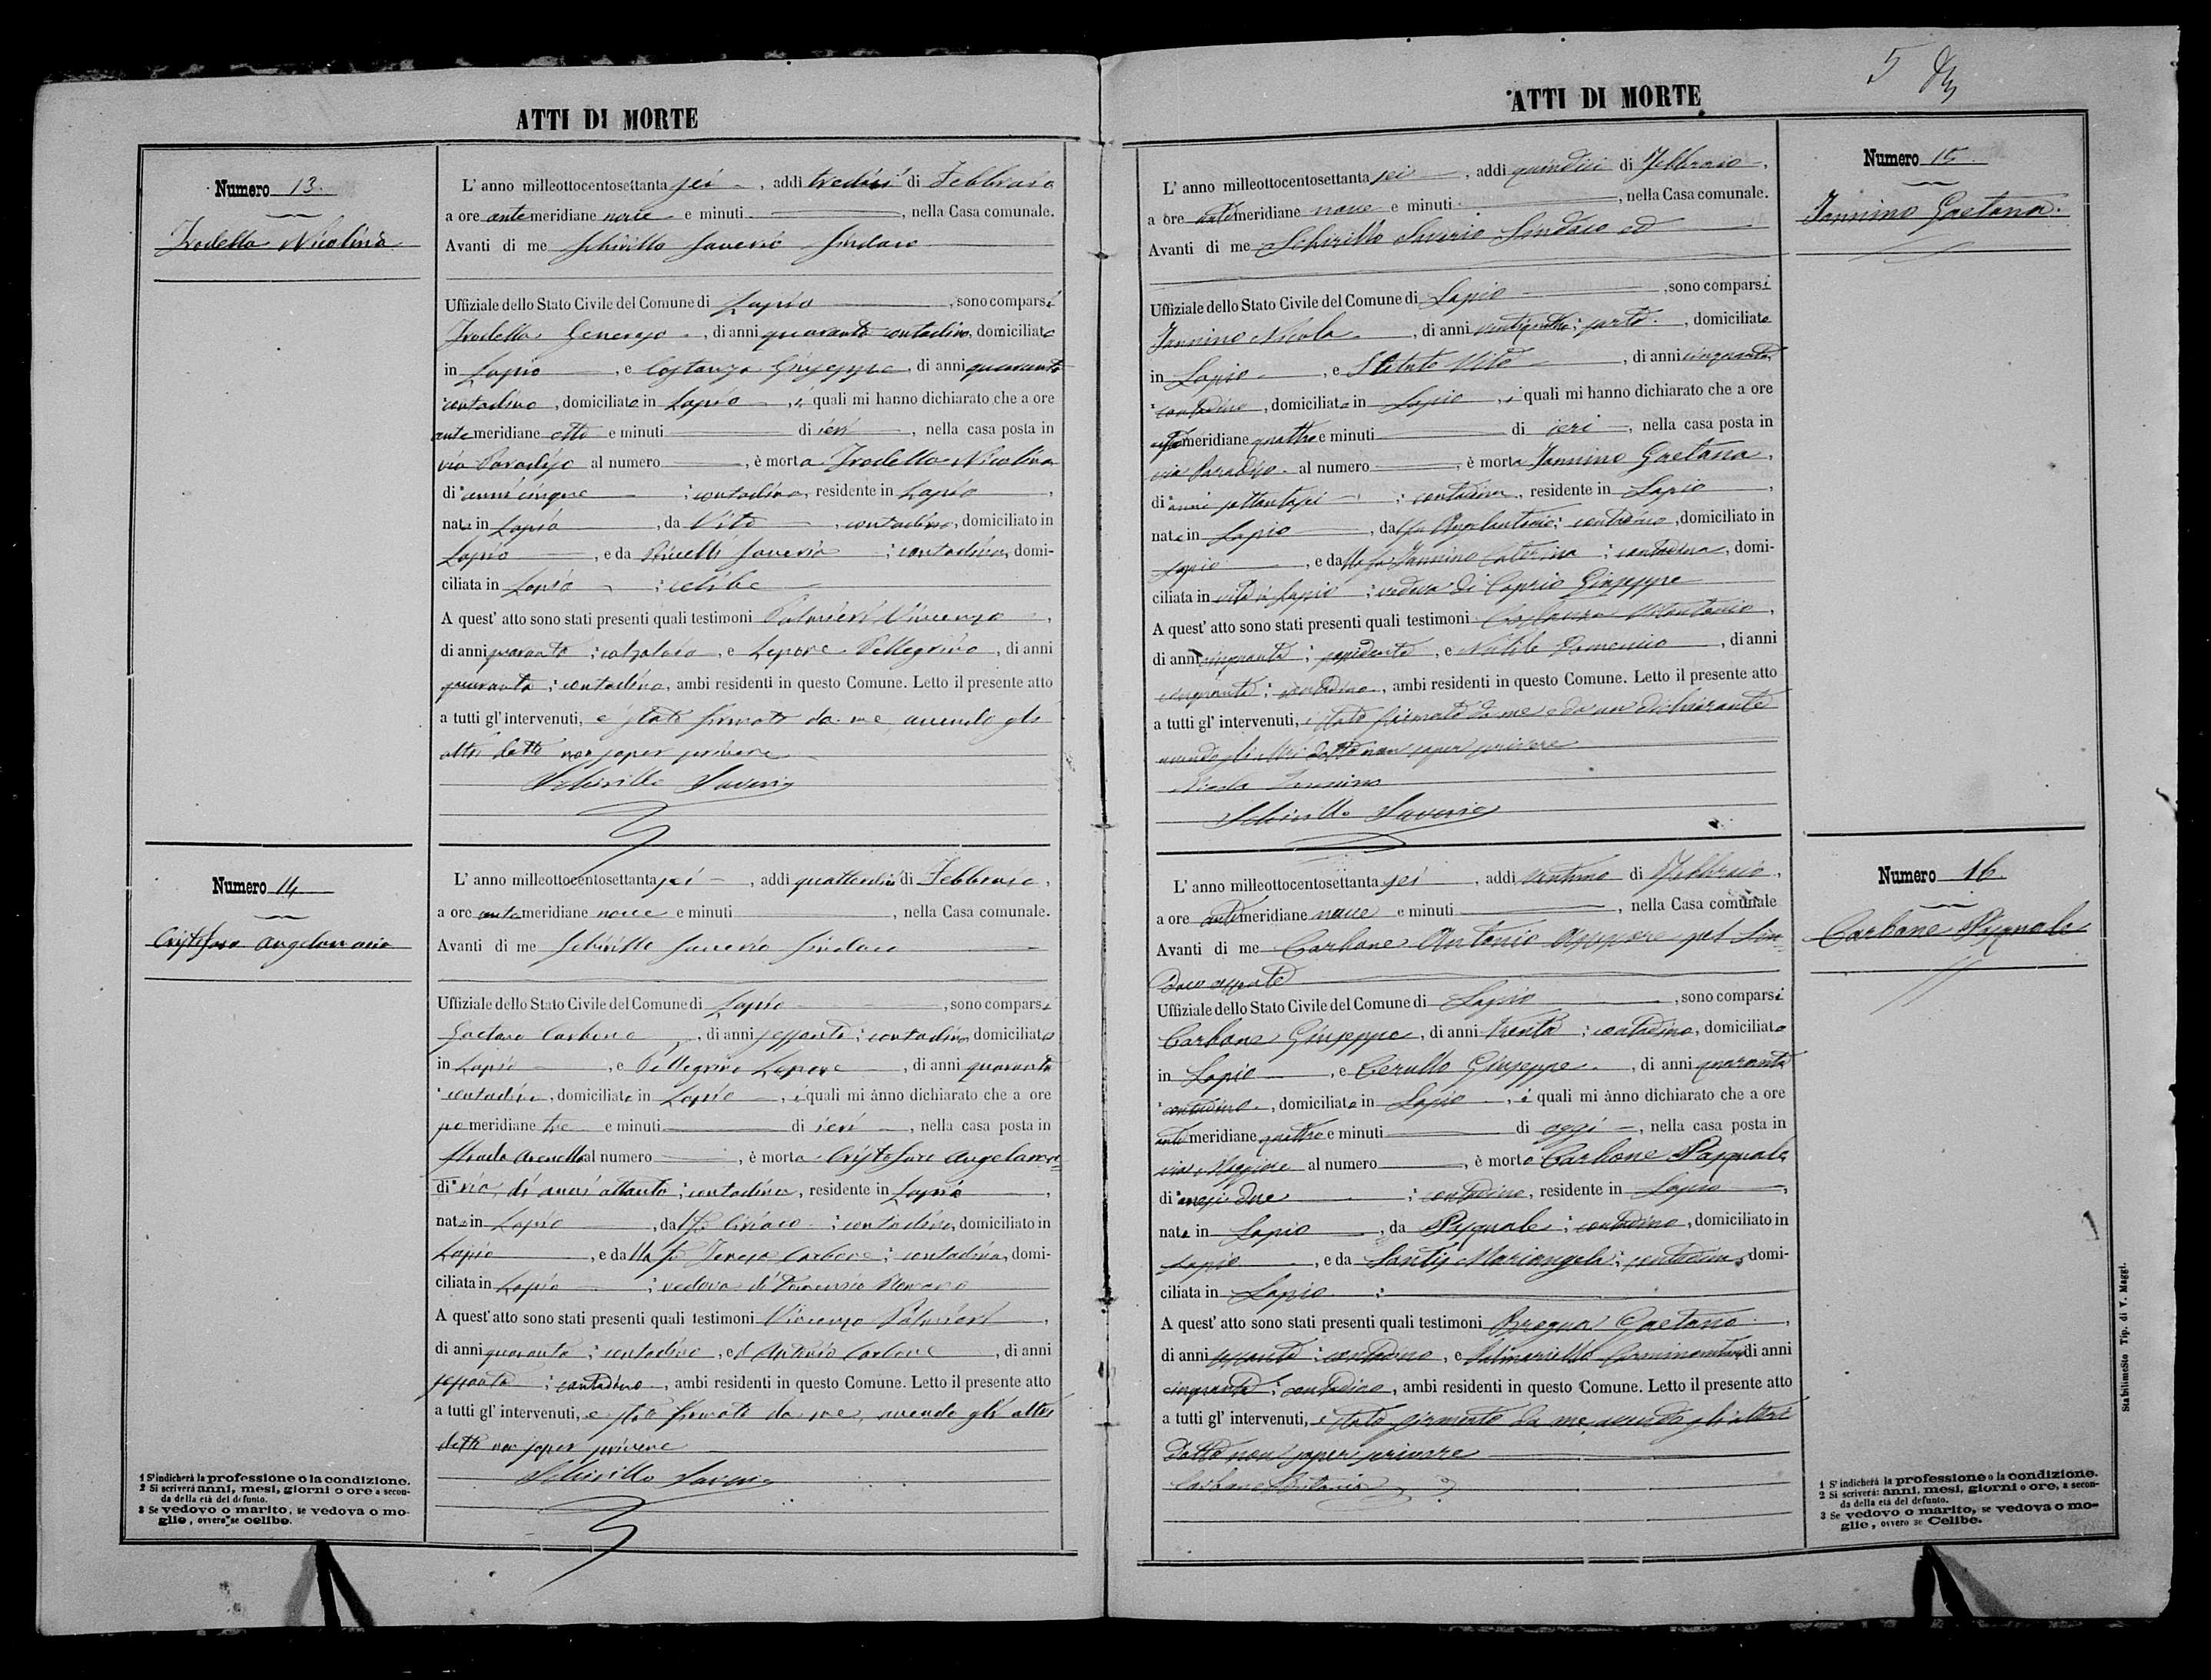 ATTI DI MORTE
Numero 13.
Trodella Nicolina
L' anno milleottocentosettanta sei, addi tredici di Febbraio
a ore antemeridiane nove e minuti, nella Casa comunale.
Avanti di me Schirillo Saverio Sindaco
Uffiziale dello Stato Civile del Comune di Lapio, sono comparsi
Trodella Generoso, di anni quaranta contadino, domiciliato
in Lapio, e Costanza Giuseppe, di anni quaranta
contadino, domiciliato in Lapio, i quali mi hanno dichiarato che a ore
antemeridiane otto e minuti di ieri, nella casa posta in
via Paradiso al numero, è morta Trodella Nicolina
di anni cinque; contadina, residente in Lapio,
nata in Lapio, da Vito, contadino, domiciliato in
Lapio, e da Saveria; contadina, domi-
ciliata in Lapio; celibe
A quest' atto sono stati presenti quali testimoni Palmieri Vincenzo,
di anni quaranta; calzolaio, e Lepore Pellegrino, di anni
quaranta; contadino, ambi residenti in questo Comune. Letto il presente atto
a tutti gl' intervenuti, è stato firmato da me, avendo gli
altri detto non saper scrivere
Schirillo Saverio
Numero 14
Cristofaro Angelamaria
L' anno milleottocentosettanta sei, addi quattordici di Febbraio,
a ore antemeridiane nove e minuti, nella Casa comunale.
Avanti di me Schirillo Saverio Sindaco
Uffiziale dello Stato Civile del Comune di Lapio, sono comparsi
Gaetano Carbone, di anni sessanta; contadino, domiciliato
in Lapio, e Pellegrino Lepore, di anni quaranta
contadino, domiciliato in Lapio, i quali mi ànno dichiarato che a ore
pomeridiane tre e minuti di ieri, nella casa posta in
strada Arenella al numero, è morta Cristofaro Angelama-
di ria, di anni ottanta; contadina, residente in Lapio,
nata in Lapio, dal fu Ciriaco; contadino, domiciliato in
Lapio, e dalla fu Teresa Carbone; contadina, domi-
ciliata in Lapio; vedova di Domenico Romano
A quest' atto sono stati presenti quali testimoni Vincenzo Palmieri,
di anni quaranta; contadino, ed Antonio Carbone, di anni
sessanta; contadino, ambi residenti in questo Comune. Letto il presente atto
a tutti gl' intervenuti, è stato firmato da me, avendo gli altri
detto non saper scrivere
Schirillo Saverio
1 S' indicherà la professione o la condizione.
2 Si scriverà anni, mesi, giorni o ore a secon-
da della età del defunto.
3 Se vedovo o marito, se vedova o mo-
glie, ovvero se celibe.
5
ATTI DI MORTE
Numero 15
Iannino Gaetana.
L' anno milleottocentosettanta sei, addi quindici di Febbraio,
a ore antimeridiane nove e minuti, nella Casa comunale.
Avanti di me Schirillo Saverio Sindaco ed
Uffiziale dello Stato Civile del Comune di Lapio, sono comparsi
Iannino Nicola, di anni ventiquattro; sarto, domiciliato
in Lapio, e Vito, di anni cinquanta
contadino, domiciliato in Lapio, i quali mi hanno dichiarato che a ore
meridiane quattro e minuti di ieri, nella casa posta in
via Paradiso al numero, è morta Iannino Gaetana,
di anni settantasei; contadina, residente in Lapio,
nata in Lapio, dal fu Angelantonio; contadino, domiciliato in
Lapio, e dalla fu Iannino Caterina; contadina, domi-
ciliata in vita in Lapio; vedova di Caprio Giuseppe
A quest' atto sono stati presenti quali testimoni Costanza Vitantonio,
di anni cinquanta; possidente, e Domenico, di anni
cinquanta; contadino, ambi residenti in questo Comune. Letto il presente atto
a tutti gl' intervenuti, è stato firmato da me e da un dichiarante
avendo gli altri detto non saper scrivere
Nicola Iannino
Schirillo Saverio
Numero 16.
Carbone Pasquale
L' anno milleottocentosettanta sei, addi ventuno di Febbraio,
a ore antimeridiane nove e minuti, nella Casa comunale
Avanti di me Carbone Antonio Assessore pel Sin-
daco assente
Uffiziale dello Stato Civile del Comune di Lapio, sono comparsi
Carbone Giuseppe, di anni trenta; contadino, domiciliato
in Lapio, e Cerullo Giuseppe, di anni quaranta
contadino, domiciliato in Lapio, i quali mi ànno dichiarato che a ore
antimeridiane quattro e minuti di oggi, nella casa posta in
via Maggiore al numero, è morto Carbone Pasquale
di mesi due; contadino, residente in Lapio,
nato in Lapio, da Pasquale; contadino, domiciliato in
Lapio, e da Santis Mariangela; contadina, domi-
ciliata in Lapio;
A quest' atto sono stati presenti quali testimoni Gaetano,
di anni sessanta; contadino, e di anni
cinquanta; contadino, ambi residenti in questo Comune. Letto il presente atto
a tutti gl' intervenuti, è stato firmato da me avendo gli altri
detto non saper scrivere
Carbone Antonio
1 S' indicherà la professione o la condizione.
2 Si scriverà: anni, mesi, giorni o ore, a secon-
da della età del defunto.
3 Se vedovo o marito, se vedova o mo-
glie, ovvero se Celibe.
Stabilimesto Tip. di V. Maggi.